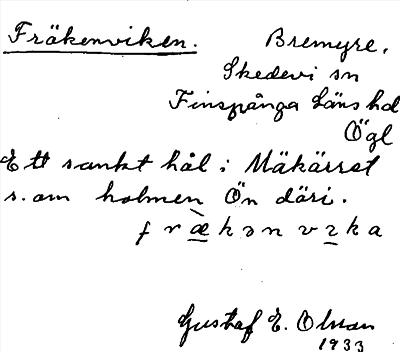 Fräkenviken. Bremyre,
Skedevi sn
Finspånga läns hd
Ögl
Ett sankt hål i Mäkärret
s.om holmen Ön däri.
fræ̀kən vɪka
Gustaf E. Olsson
1933